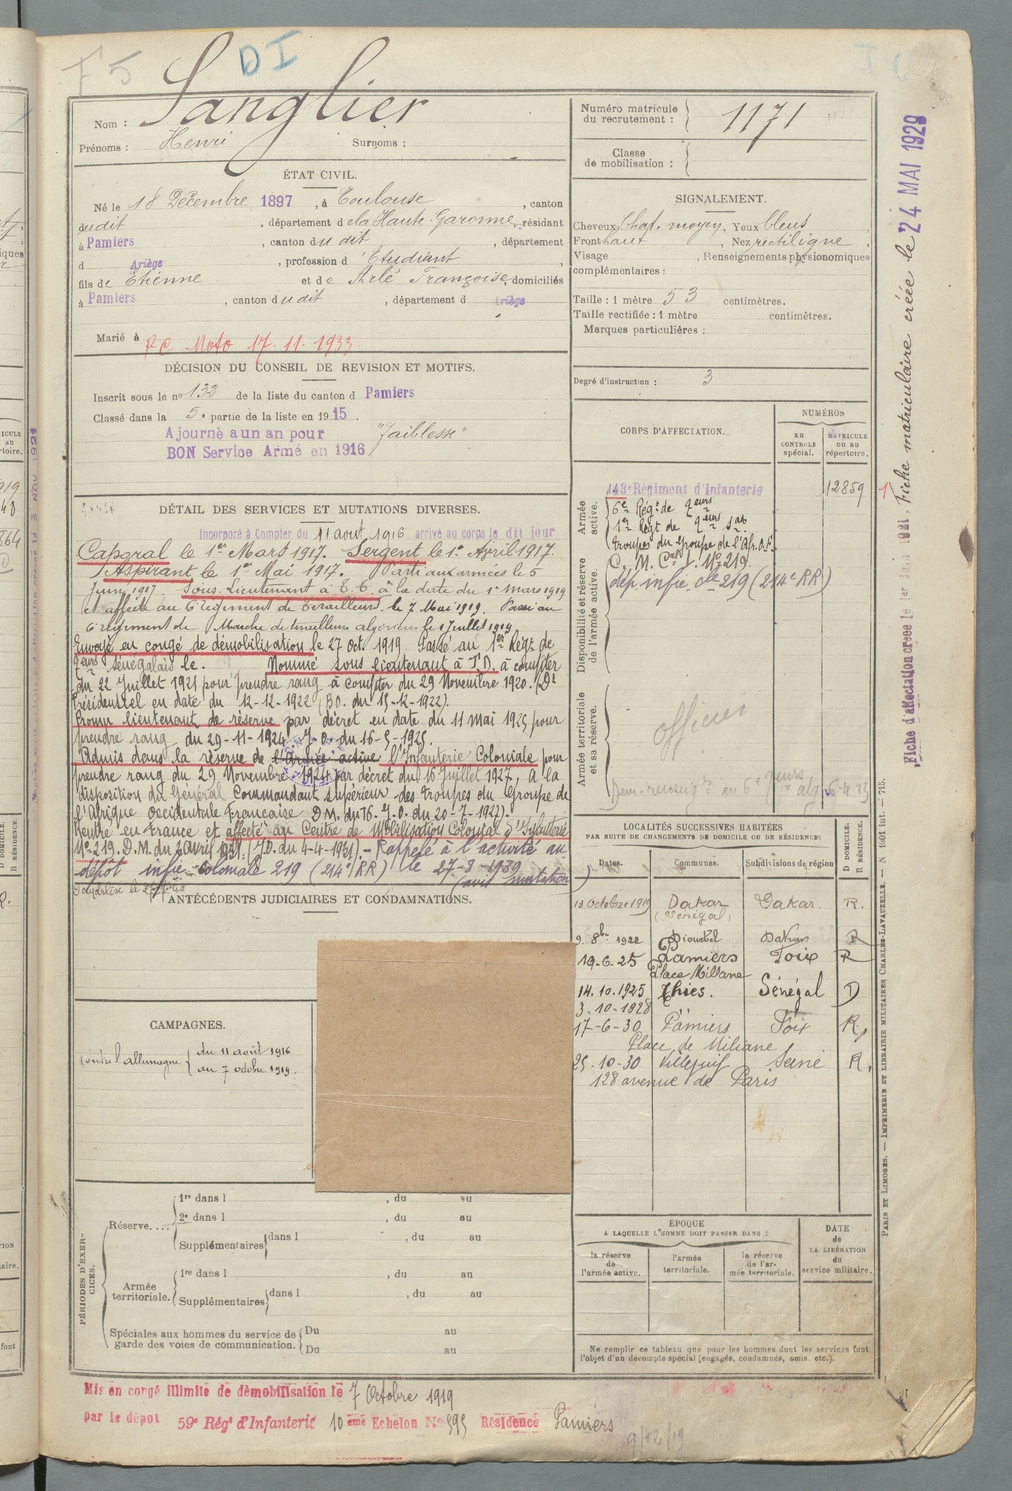 F5 DI
Nom : Sanglier
Prénoms : Henri Surnoms :
Numéro matricule
du recrutement : 1171
Classe
de mobilisation :
ÉTAT CIVIL.
Né le 18 Décembre 1897, à Toulouse, canton
dudit, département de la Haute-Garonne, résidant
à Pamiers, canton dudit, département
d Ariège, profession d'Étudiant
fils de Étienne et de Arlé Françoise, domiciliés
à Pamiers, canton dudit, département d Ariège
Marié à
17.11.1933
DÉCISION DU CONSEIL DE REVISION ET MOTIFS.
Inscrit sous le no 133 de la liste du canton d Pamiers
Classé dans la 5e partie de la liste en 1915
Ajourné a un an pour "Faiblesse"
BON Service Armé en 1916
DÉTAIL DES SERVICES ET MUTATIONS DIVERSES.
Incorporé à Compter du 11 août 1916 arrivé au corps le dit jour
Caporal le 1er Mars 1917. Sergent le 1er Avril 1917.
Aspirant le 1er Mai 1917. Parti aux armées le 6
Juin 1917 Sous-Lieutenant à T.T. à la date du 1er Mars 1919
et affecté au 6 Régiment de Tirailleurs le 7 Mai 1919. Passé au
6 régiment de Marche de tirailleurs algériens le 1 Juillet 1919
Envoyé en congé de démobilisation le 27 oct. 1919 Passé au 1er Régt de
Sénégalais le. Nommé sous lieutenant à T.D. à compter
du 22 Juillet 1921 pour prendre rang à compter du 29 Novembre 1920. Dt
Présidentiel en date du 12-12-1922 (B.O. du 15-12-1922).
Promu lieutenant de réserve par décret en date du 11 Mai 1925 pour
prendre rang du 29-11-1924. J.O. du 16-5-1925.
Admis dans la réserve de l'Armée active l'Infanterie Coloniale pour
prendre rang du 29 Novembre 1924 par décret du 16 Juillet 1927, A la
disposition du Général Commandant Supérieur des Troupes du Groupe de
l'Afrique Occidentale Française D.M. du 16-7-0. du 20-7-1927).
Rentré en France et affecté au Centre de Mobilisation Colonial d'Infanterie
No 219. D.M. du 2 avril 1931. (J.O. du 4-4-1931). - Rappelé à l'activité au
dépôt infie coloniale 219 (214e RR) le 27-8-1939
(avis mutation)
ANTÉCÉDENTS JUDICIAIRES ET CONDAMNATIONS.
CAMPAGNES.
Contre l'allemagne du 11 août 1916
au 7 octobre 1919.
PÉRIODES D'EXERCICES.
Réserve.... 1re dans l , du au
2e dans l , du au
Supplémentaires dans l , du au
Armée
territoriale. 1re dans l , du au
Supplémentaires dans l , du au
Spéciales aux hommes du service de
garde des voies de communication. Du au
Du au
SIGNALEMENT.
Cheveux Chat. moyen, Yeux bleus
Front haut, Nez rectiligne
Visage , Renseignements physionomiques
complémentaires :
Taille : 1 mètre 53 centimètres.
Taille rectifiée : 1 mètre centimètres.
Marques particulières :
Degré d'instruction : 3
CORPS D'AFFECTATION.
NUMÉROS
AU CONTROLE spécial.
MATRICULE OU AU répertoire.
Armée active.
143e Régiment d'Infanterie 12859
6e Régt de Tirailleurs
1er Regt de
Troupes du Groupe de l'Afr. O.F.
C. M. C. I. No 219.
Disponibilité et réserve de l'armée active.
dép. infie cle 219 (214e RR)
Armée territoriale et sa réserve.
officier
LOCALITÉS SUCCESSIVES HABITÉES
PAR SUITE DE CHANGEMENTS DE DOMICILE OU DE RÉSIDENCE.
Dates. Communes. Subdivisions de région D DOMICILE. R RÉSIDENCE.
13 Octobre 1919 Dakar (Sénégal) Dakar. R.
9 8bre 1922 Diourbel Dakar R
19-6-25 Pamiers Foix R
Place Millane
14.10.1925 Thies. Sénégal D
3-10-1928
17-6-30 Pamiers Foix R.
Place de Miliane
25-10-30 Villejuif Seine R.
128 avenue de Paris
ÉPOQUE
A LAQUELLE L'HOMME DOIT PASSER DANS :
la réserve de l'armée active. l'armée territoriale. la réserve de l'armée territoriale.
DATE de LA LIBÉRATION du service militaire.
Ne remplir ce tableau que pour les hommes dont les services font
l'objet d'un décompte spécial (engagés, condamnés, omis, etc.).
Mis en congé illimité de démobilisation le 7 Octobre 1919
par le dépôt 59e Régt d'Infanterie 10 ème Echelon No 595 Résidence Pamiers
9/12/19
Fiche matriculaire créée le 24 MAI 1929
PARIS ET LIMOGES. — IMPRIMERIE ET LIBRAIRIE MILITAIRES CHARLES-LAVAUZELLE.